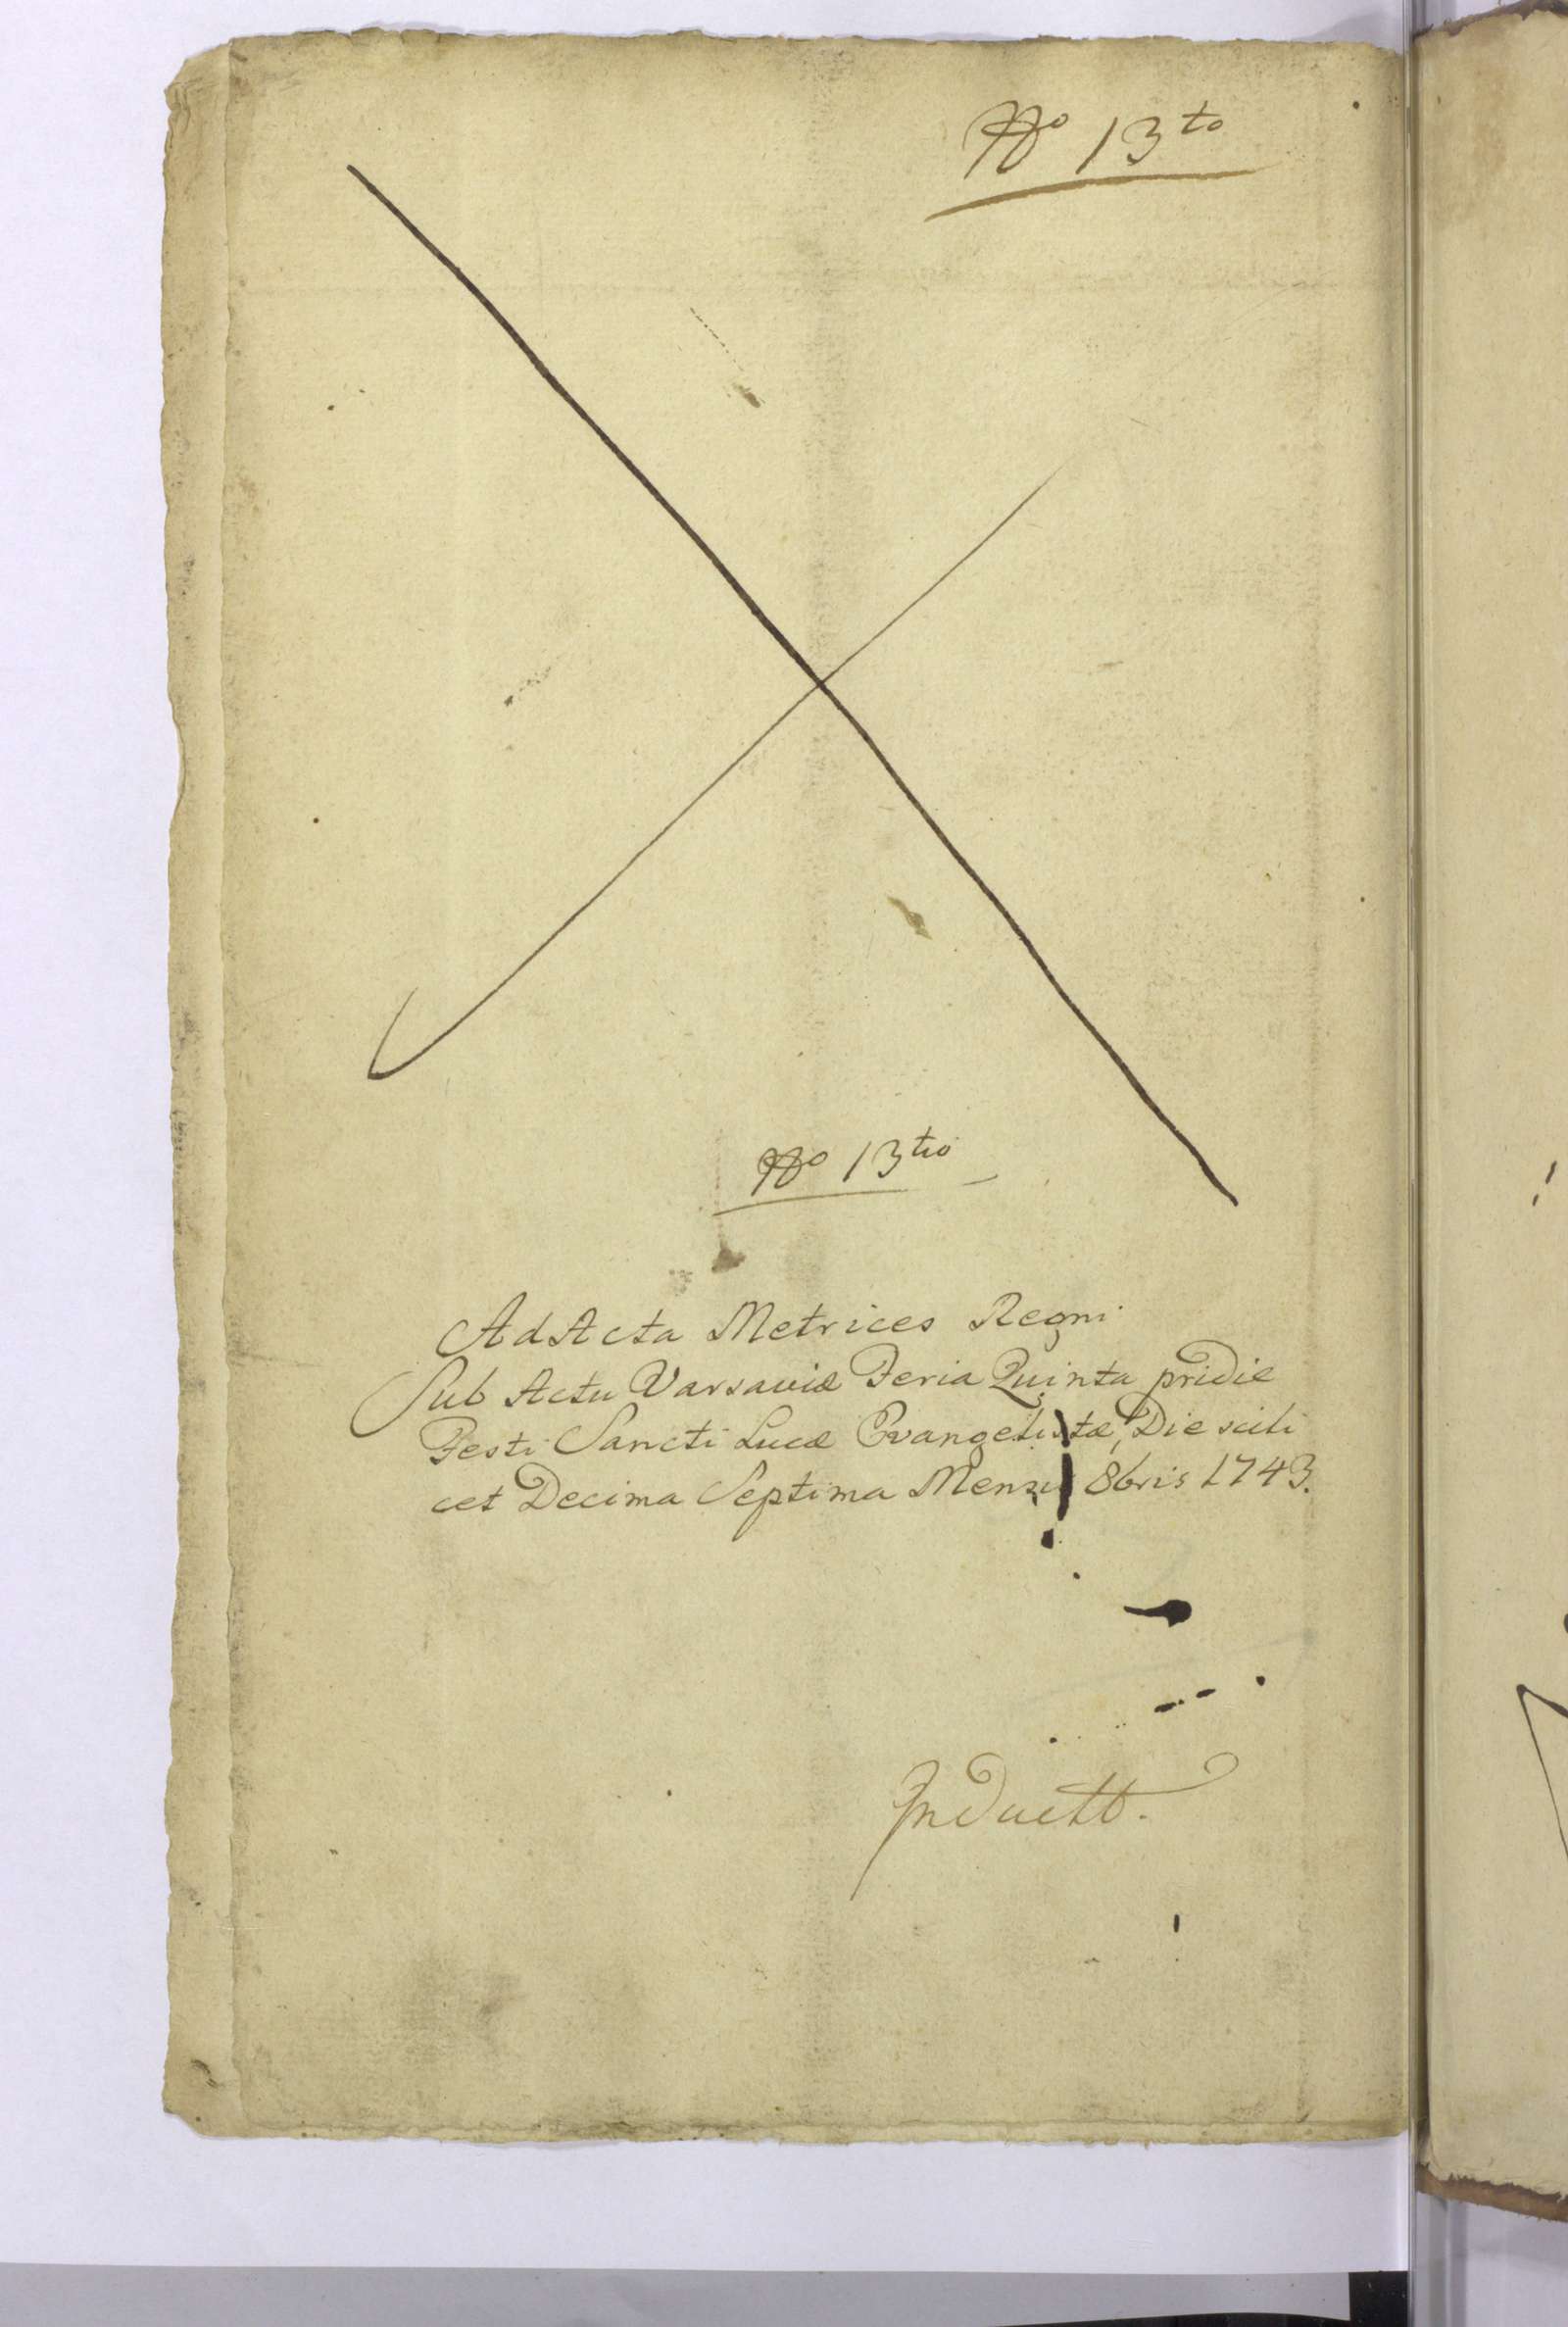 No 13to
No 13tio
Ad Acta Metrices Regni
Sub Actu Varsaviæ Feria Quinta pridie
Festi Sancti Lucæ Evangelistæ, Die scili
cet Decima Septima Mensis 8bris 1743.
Induett.